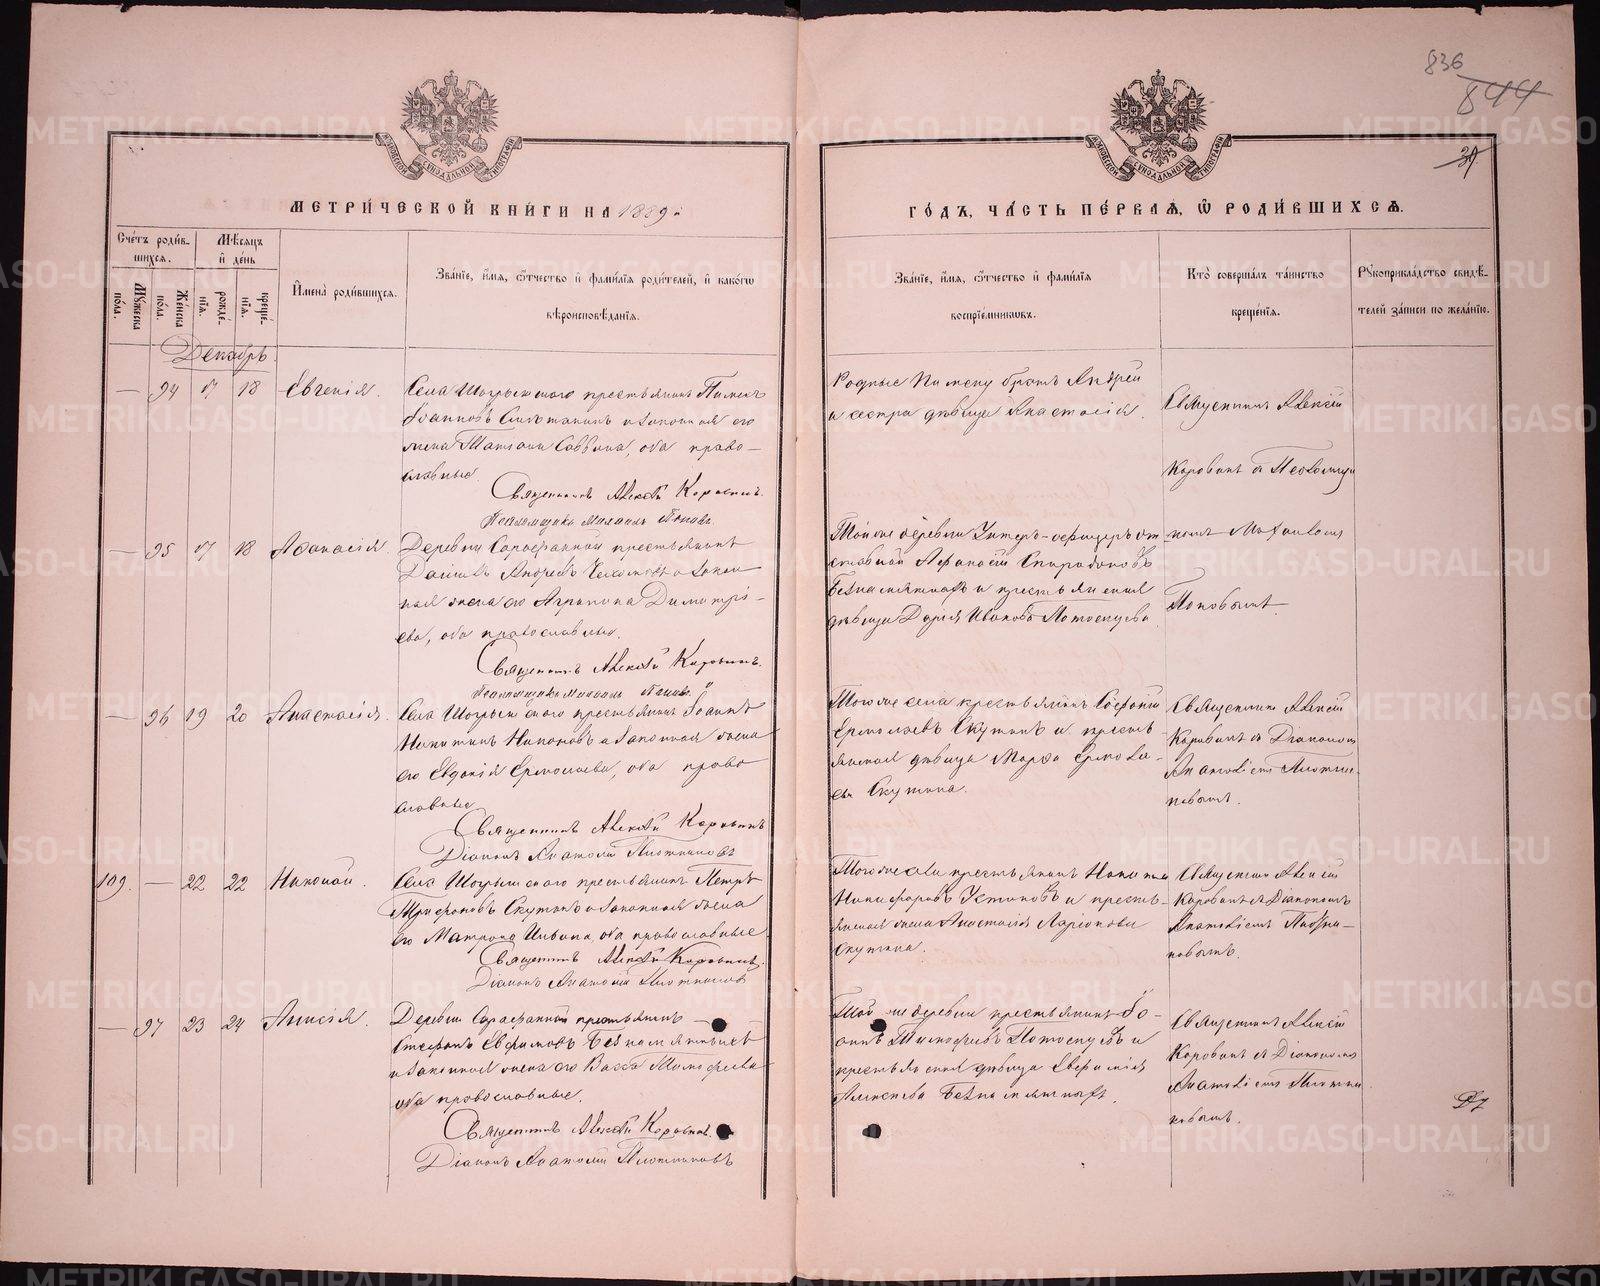 836
844
МЕТРИЧЕСКОЙ КНИГИ НА 1889й
ГОДЪ, ЧАСТЬ ПЕРВАЯ, Ѡ РОДИВШИХСЯ.
Счетъ родив-
шихся.
Мужеска пола.
Женска пола.
Мѣсяцъ
и день
рожде-
нія.
креще-
нія.
Имена родившихся.
Званіе, имя, отчество и фамилія родителей, и какого
вѣроисповѣданія.
Званіе, имя, отчество и фамилія
воспріемниковъ.
Кто совершалъ таинство
крещенія.
Рукоприкладство свидѣ-
телей записи по желанію.
Декабрь
— 94 17 18 Евгенія.
Села Шогрышскаго крестьянинъ Пименъ
Іоанновъ и законная его
жена Татіана Саввина, оба право-
славные.
Священникъ Алексѣй Коровинъ.
Псаломщикъ Михаилъ Поповъ.
Родные Пимену братъ Андрей
и сестра дѣвица Анастасія.
Священникъ Алексій
Коровинъ съ Псаломщи
— 95 17 18 Аѳанасія.
Деревни Сарафанной крестьянинъ
Андреевъ и закон
ная жена его Агрипина Димитрі-
ева, оба православные.
Священникъ Алексѣй Коровинъ.
Псаломщикъ Михаилъ Поповъ.
Той же деревни Унтеръ-офицеръ от
ставной Аѳанасій Спиридоновъ
Безпамятныхъ и крестьянская
дѣвица Дарія Иванова Потоскуева.
комъ Михаиломъ
Поповымъ
— 96 19 20 Анастасія.
Села Шогрышскаго крестьянинъ Іоаннъ
Никитинъ Никоновъ и законная жена
его Евдокія Ермолаева, оба право
славные
Священникъ Алексѣй Коровинъ
Діаконъ Анатолій Плотниковъ
Того же села крестьянинъ
Ермолаевъ Скутинъ и кресть
янская дѣвица Марѳа Ермола-
ева Скутина.
Священникъ Алексій
Коровинъ съ Діакономъ
Анатоліемъ Плотни-
ковымъ.
109. — 22 22 Николай.
Села Шогрышскаго крестьянинъ Петръ
Трифоновъ Скутинъ и законная жена
его Матрона Ивановна оба православные.
Священникъ Алексѣй Коровинъ.
Діаконъ Анатолій Плотниковъ
Того же села крестьянинъ Никита
Никифоровъ Устиновъ и кресть-
янская жена Анастасія Ларіонова
Скутина.
Священникъ Алексій
Коровинъ съ Діакономъ
Анатоліемъ Плотни-
ковымъ.
— 97 23 24 Анисія.
Деревни Сарафанной крестьянинъ
Стефанъ Евфимовъ Безпамятныхъ
и законная жена его Васса Тимофеева
оба православные.
Священникъ Алексѣй Коровинъ.
Діаконъ Анатолій Плотниковъ
Той же деревни крестьянинъ Іо-
аннъ Тимофеевъ Потоскуевъ и
крестьянская дѣвица Евфимія
Алексѣева Безпамятныхъ.
Священникъ Алексій
Коровинъ съ Діакономъ
Анатоліемъ Плотни
ковымъ.
METRIKI.GASO-URAL.RU